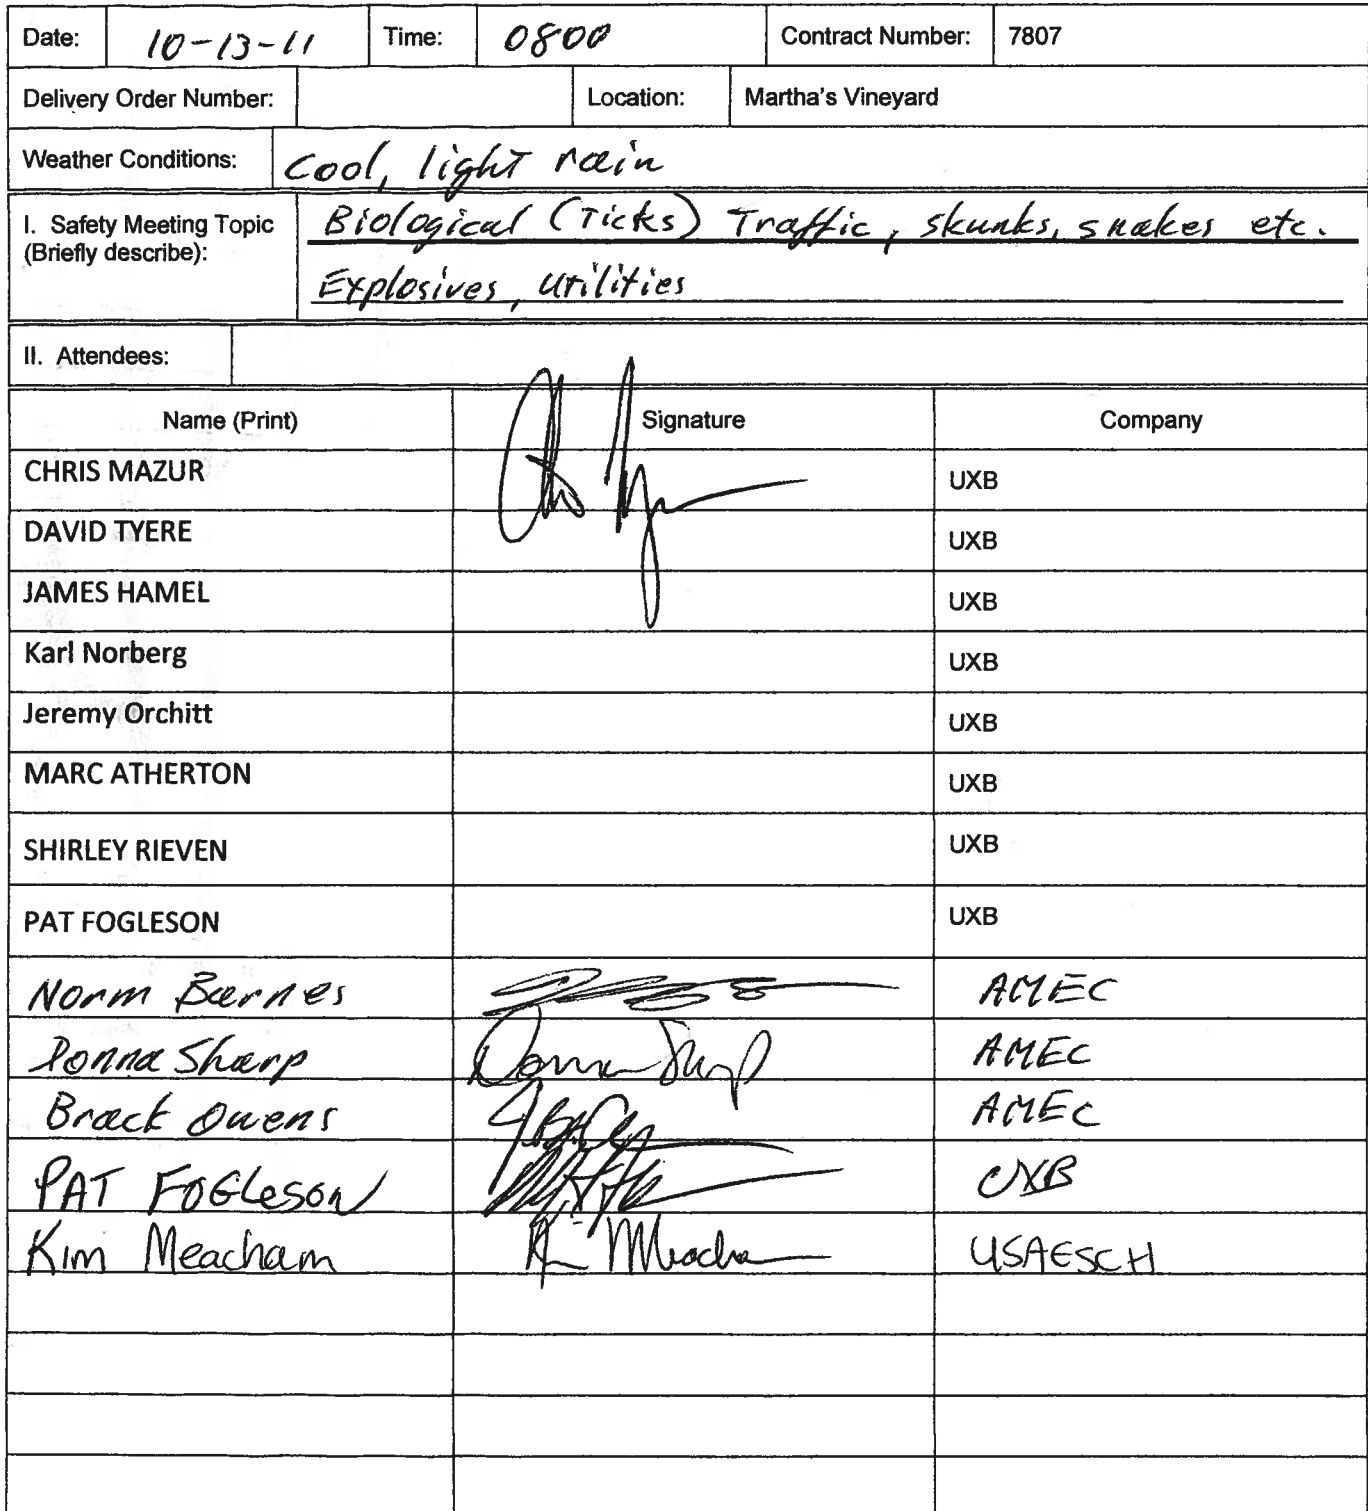 Date: 10-13-11 Time: 0800 Contract Number: 7807
Delivery Order Number: Location: Martha's Vineyard
Weather Conditions: Cool, light rain
I. Safety Meeting Topic (Briefly describe): Biological (Ticks) Traffic, skunks, snakes etc.
Explosives, Utilities
II. Attendees:
Name (Print) Signature Company
CHRIS MAZUR UXB
DAVID TYERE UXB
JAMES HAMEL UXB
Karl Norberg UXB
Jeremy Orchitt UXB
MARC ATHERTON UXB
SHIRLEY RIEVEN UXB
PAT FOGLESON UXB
Norm Barnes AMEC
Donna Sharp Donna Sharp AMEC
Brack Owens AMEC
PAT FOGLESON UXB
Kim Meacham K Meacham USAESCH